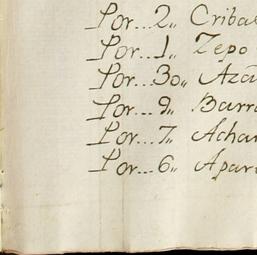 Por... 2,, Criba
Por... 1,, Zepo
Por... 30,, Aza
Por... 9,, Barr
Por... 7,, Achar
Por... 6,, Apar